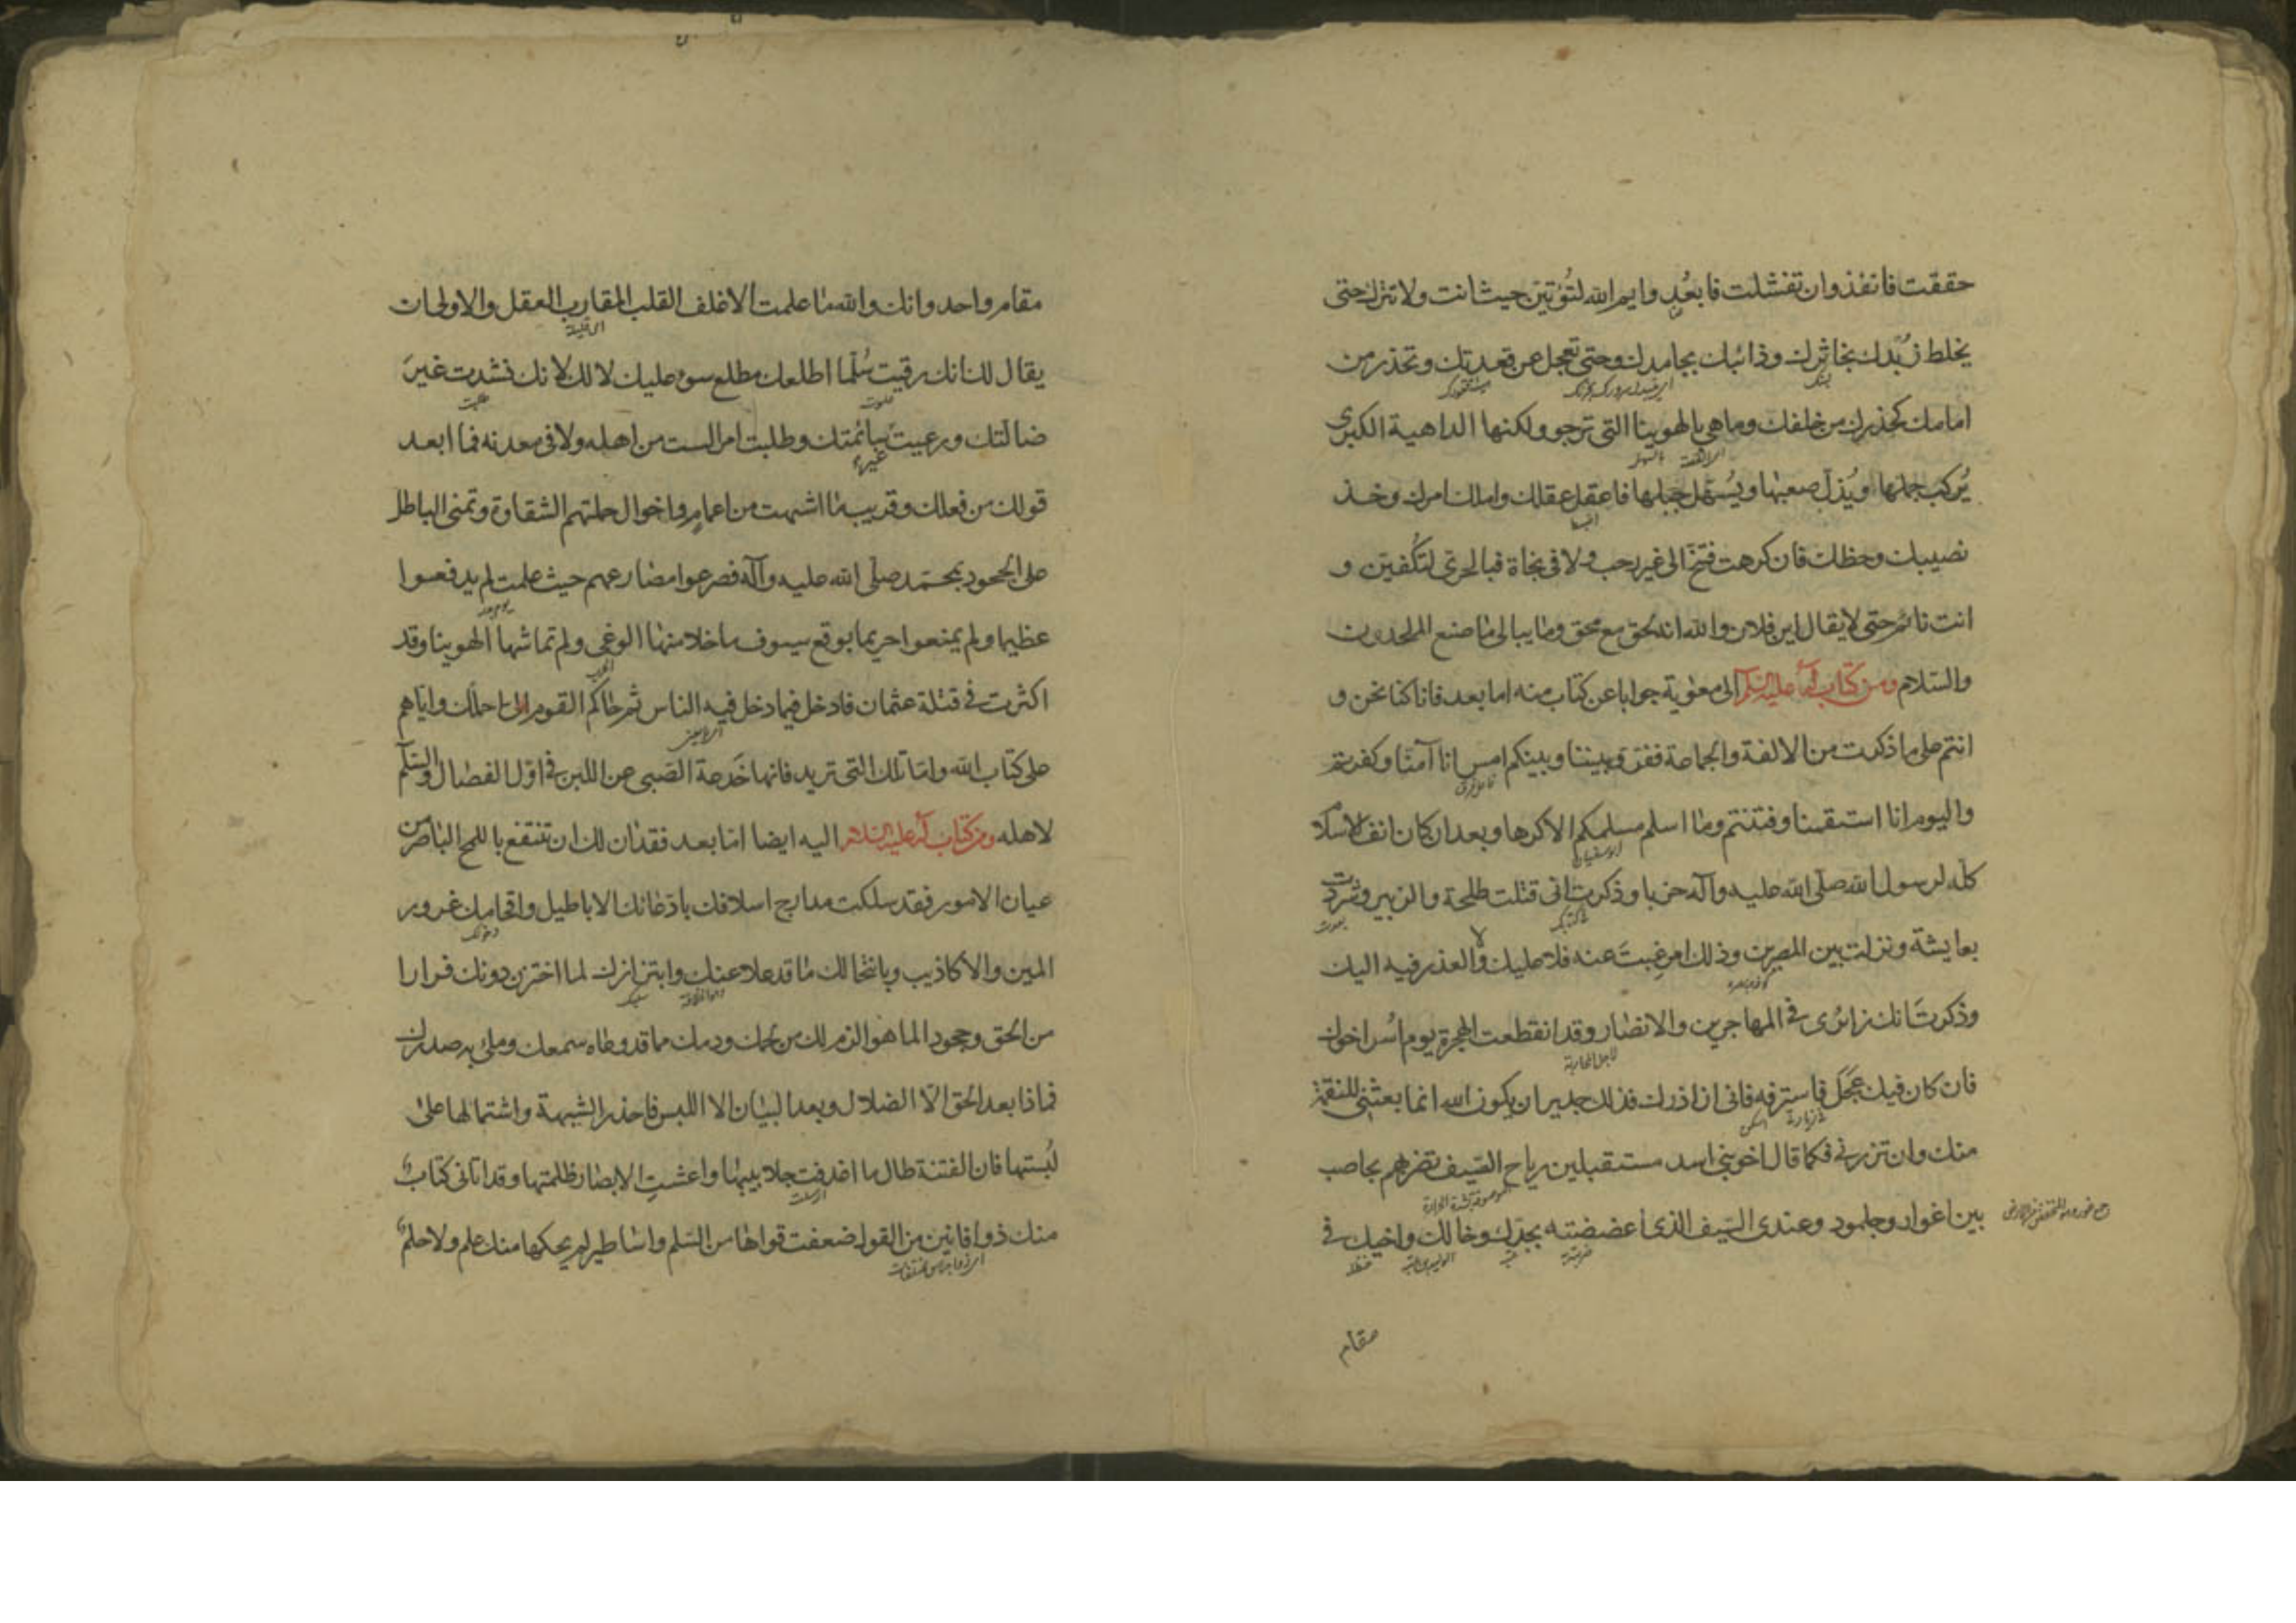 حققت فانفذ وان تفشلت فابعُد وايم الله لتُؤتينّ حيث انت ولا تترك حتى
يخلط زُبدك بخاثرك وذائبك بجامدك وحتى تعجل عن قعدتك وتحذر من
امامك كحذرك من خلفك وما هى بالهوينا التى ترجو ولكنها الداهية الكبرى
يُركب جملها ويُذلّ صعبها ويُسهّل جبلها فاعقل عقلك واملك امرك وخذ
نصيبك وحظك فان كرهت فتنحّ الى غير رحب ولا فى نجاة فبالحرىّ لتُكفينّ و
انت نائم حتى لا يقال اين فلان والله انه لحق مع محق وما يبالى ما صنع الملحدون
والسّلام ومن كتاب له عليه السّلم الى معوية جوابا عن كتاب منه اما بعد فانا كنا نحن و
انتم على ما ذكرت من الالفة والجماعة ففرّق بيننا وبينكم امس انا آمنّا وكفرتم
واليوم انا استقمنا وفتنتم وما اسلم مسلمكم الا كرها وبعد ان كان انف الاسلام
كلّه لرسول الله صلّى الله عليه وآله حزبا وذكرت انى قتلت طلحة والزبير وشرّدت
بعايشة ونزلت بين المصرين وذلك امر غِبتَ عنه فلا عليك ولا العذر فيه اليك
وذكرتَ انك زائرى فى المهاجرين والانصار وقد انقطعت الهجرة يوم اُسر اخوك
فان كان فيك عَجَل فاسترفه فانى ان ازرك فذلك جدير ان يكون الله انما بعثنى للنقمة
منك وان تزرنى فكما قال اخو بنى اسد مستقبلين رياح الصّيف تضربهم بحاصب
بين اغوار وجلمود وعندى السّيف الذى اعضضته بجدّك وخالك واخيك فى
مقام
مقام واحد وانك والله ما علمت الاغلف القلب المقارب العقل والاولى ان
يقال لك انك رقيت سُلّما اطلعك مطلع سوء عليك لا لك لانك نشدت غيرَ
ضالتك ورعيت غير سائمتك وطلبت امرا لست من اهله ولا فى معدنه فما ابعد
قولك من فعلك وقريب ما اشبهت من اعمام واخوال حملتهم الشقاوة وتمنى الباطل
على الجحود بمحمّد صلّى الله عليه وآله فصرعوا مصارعهم حيث علمت لم يدفعوا
عظيما ولم يمنعوا حريما بوقع سيوف ما خلا منها الوغى ولم تماشها الهوينا وقد
اكثرت فى قتلة عثمان فادخل فيما دخل فيه الناس ثم حاكم القوم الىّ احملك واياهم
على كتاب الله وامّا تلك التى تريد فانها خَدعة الصّبى عن اللبن فى اوّل الفصال والسّلم
لاهله ومن كتاب له عليه السّلم اليه ايضا امّا بعد فقد ان لك ان تنتفع باللمح الباصر من
عيان الامور فقد سلكت مدارج اسلافك بادّعائك الاباطيل واقحامك غرور
المين والاكاذيب وبانتحالك ما قد علا عنك وابتزازك لما اختزن دونك فرارا
من الحق وجحودا لما هو الزم لك من لحمك ودمك مما قد وعاه سمعك وملئ به صدرك
فماذا بعد الحق الّا الضلال وبعد البيان الا اللبس فاحذر الشبهة واشتمالها على
لُبستها فان الفتنة طال ما اغدفت جلابيبها واعشت الابصار ظلمتها وقد اتانى كتاب
منك ذو افانين من القول ضعفت قواها من السّلم واساطير لم يحكها منك علم ولا حلم